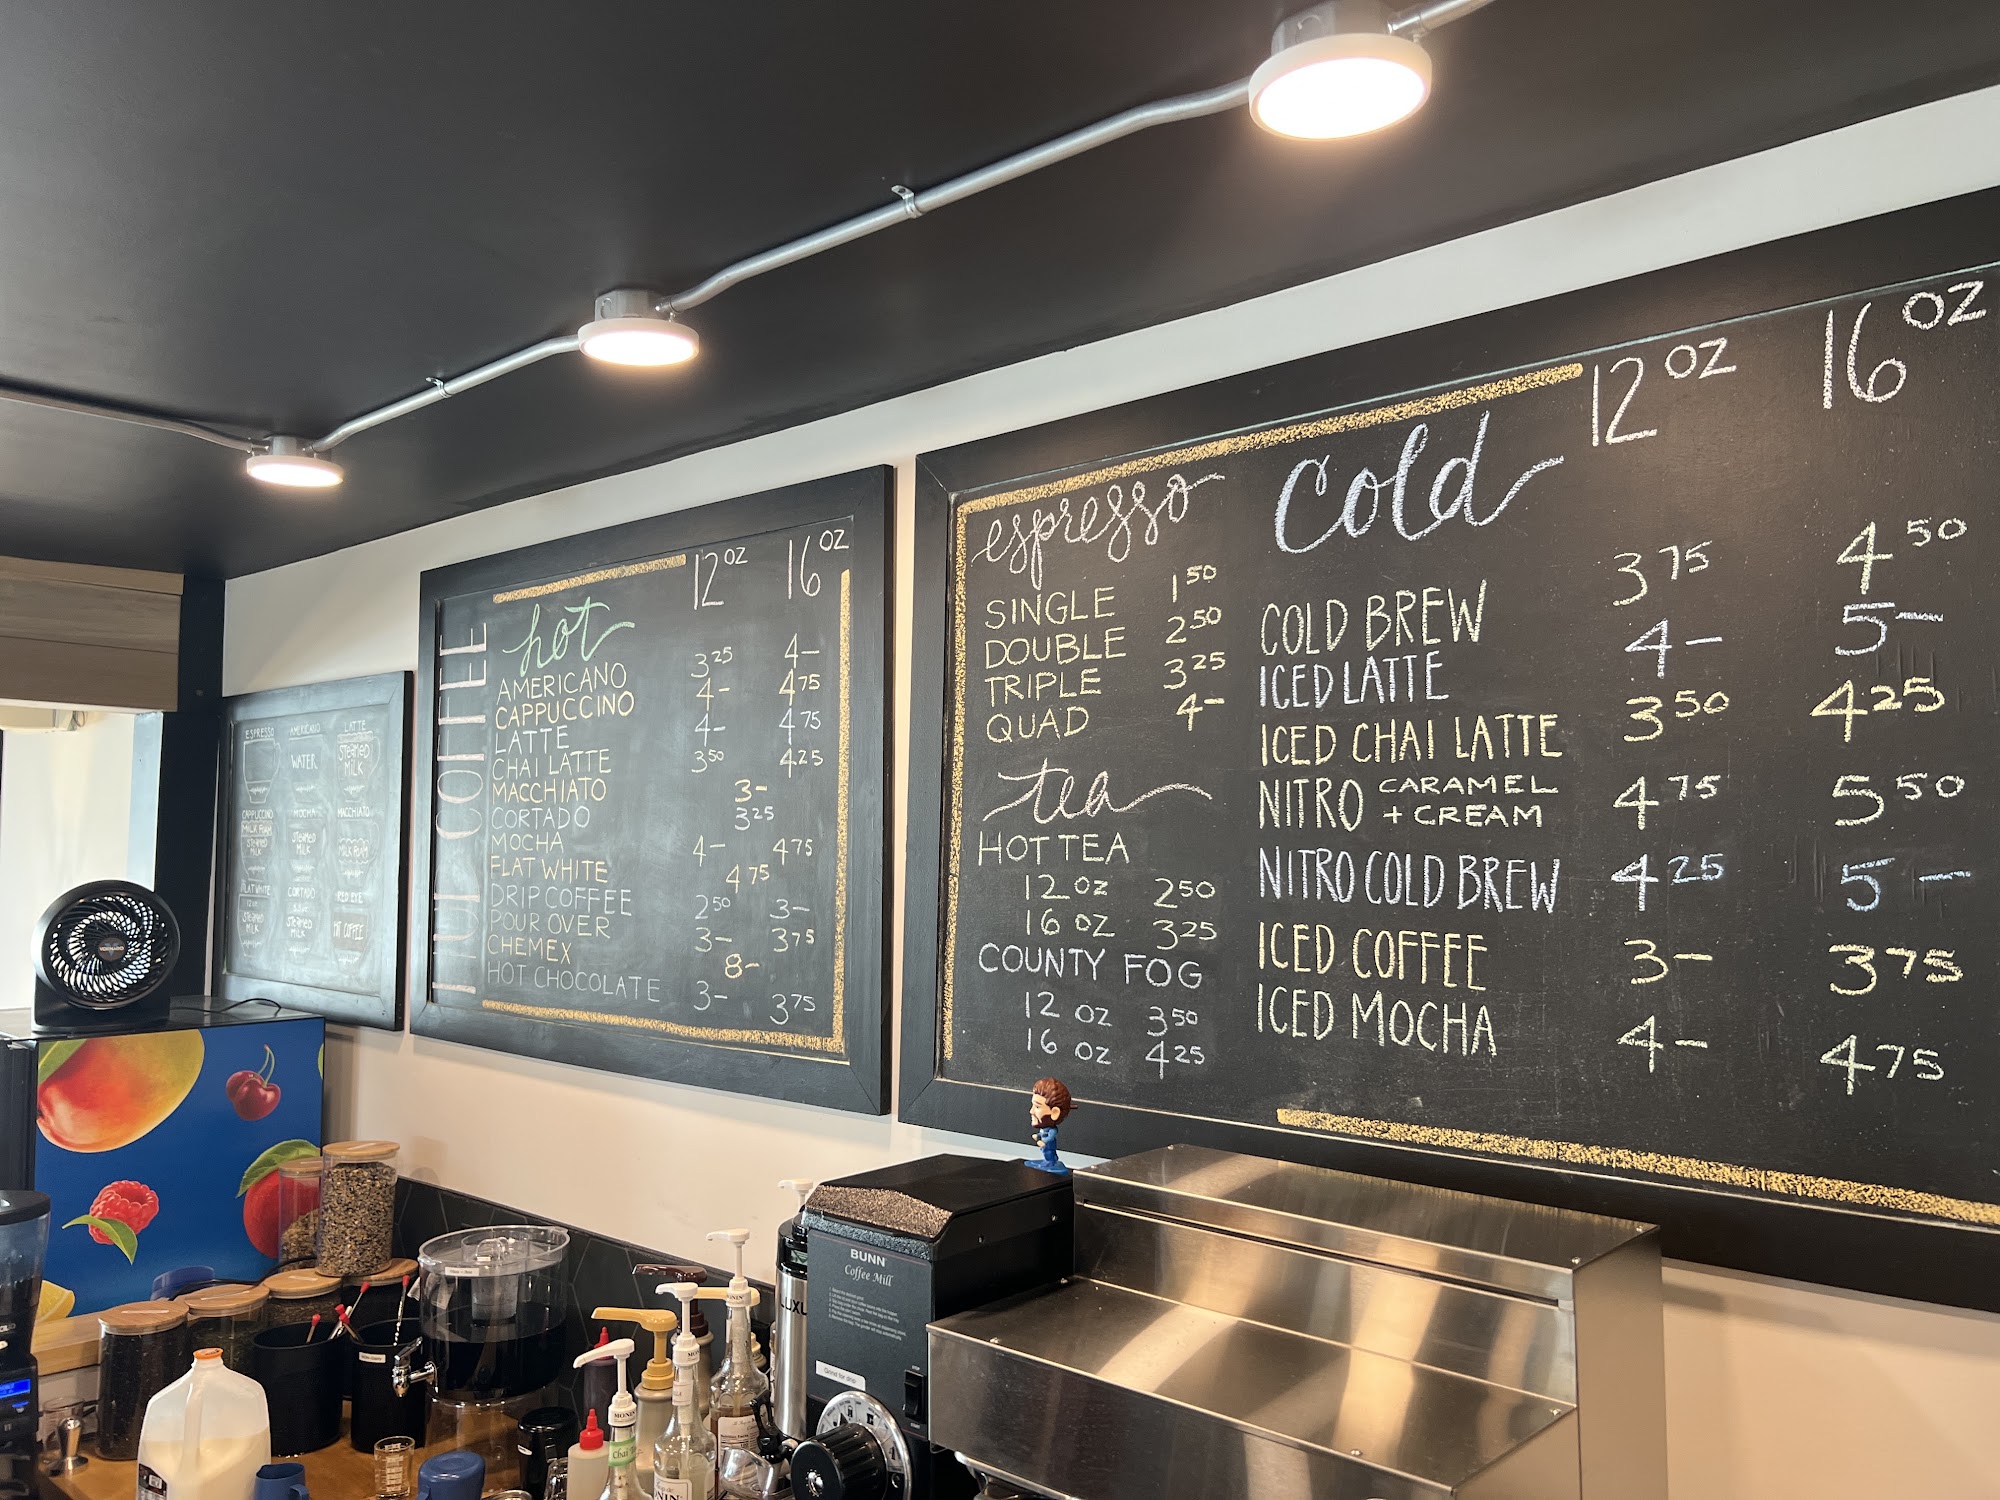 ESPRESSO AMERICANO LATTE
WATER STEAMED MILK
CAPPUCCINO MOCHA MACCHIATO
MILK FOAM
STEAMED MILK STEAMED MILK MILK FOAM
FLAT WHITE CORTADO RED EYE
STEAMED MILK STEAMED MILK HOT COFFEE
COFFEE
12 OZ 16 OZ
hot
AMERICANO 3 25 4-
CAPPUCCINO 4- 4 75
LATTE 4- 4 75
CHAI LATTE 3 50 4 25
MACCHIATO 3-
CORTADO 3 25
MOCHA 4- 4 75
FLAT WHITE 4 75
DRIP COFFEE 2 50 3-
POUR OVER 3- 3 75
CHEMEX 8-
HOT CHOCOLATE 3- 3 75
espresso
SINGLE 1 50
DOUBLE 2 50
TRIPLE 3 25
QUAD 4-
tea
HOT TEA
12 OZ 2 50
16 OZ 3 25
COUNTY FOG
12 OZ 3 50
16 OZ 4 25
cold 12 OZ 16 OZ
COLD BREW 3 75 4 50
ICED LATTE 4- 5-
ICED CHAI LATTE 3 50 4 25
NITRO CARAMEL + CREAM 4 75 5 50
NITRO COLD BREW 4 25 5-
ICED COFFEE 3- 3 75
ICED MOCHA 4- 4 75
BUNN
Coffee Mill
Grind for drip
MONIN